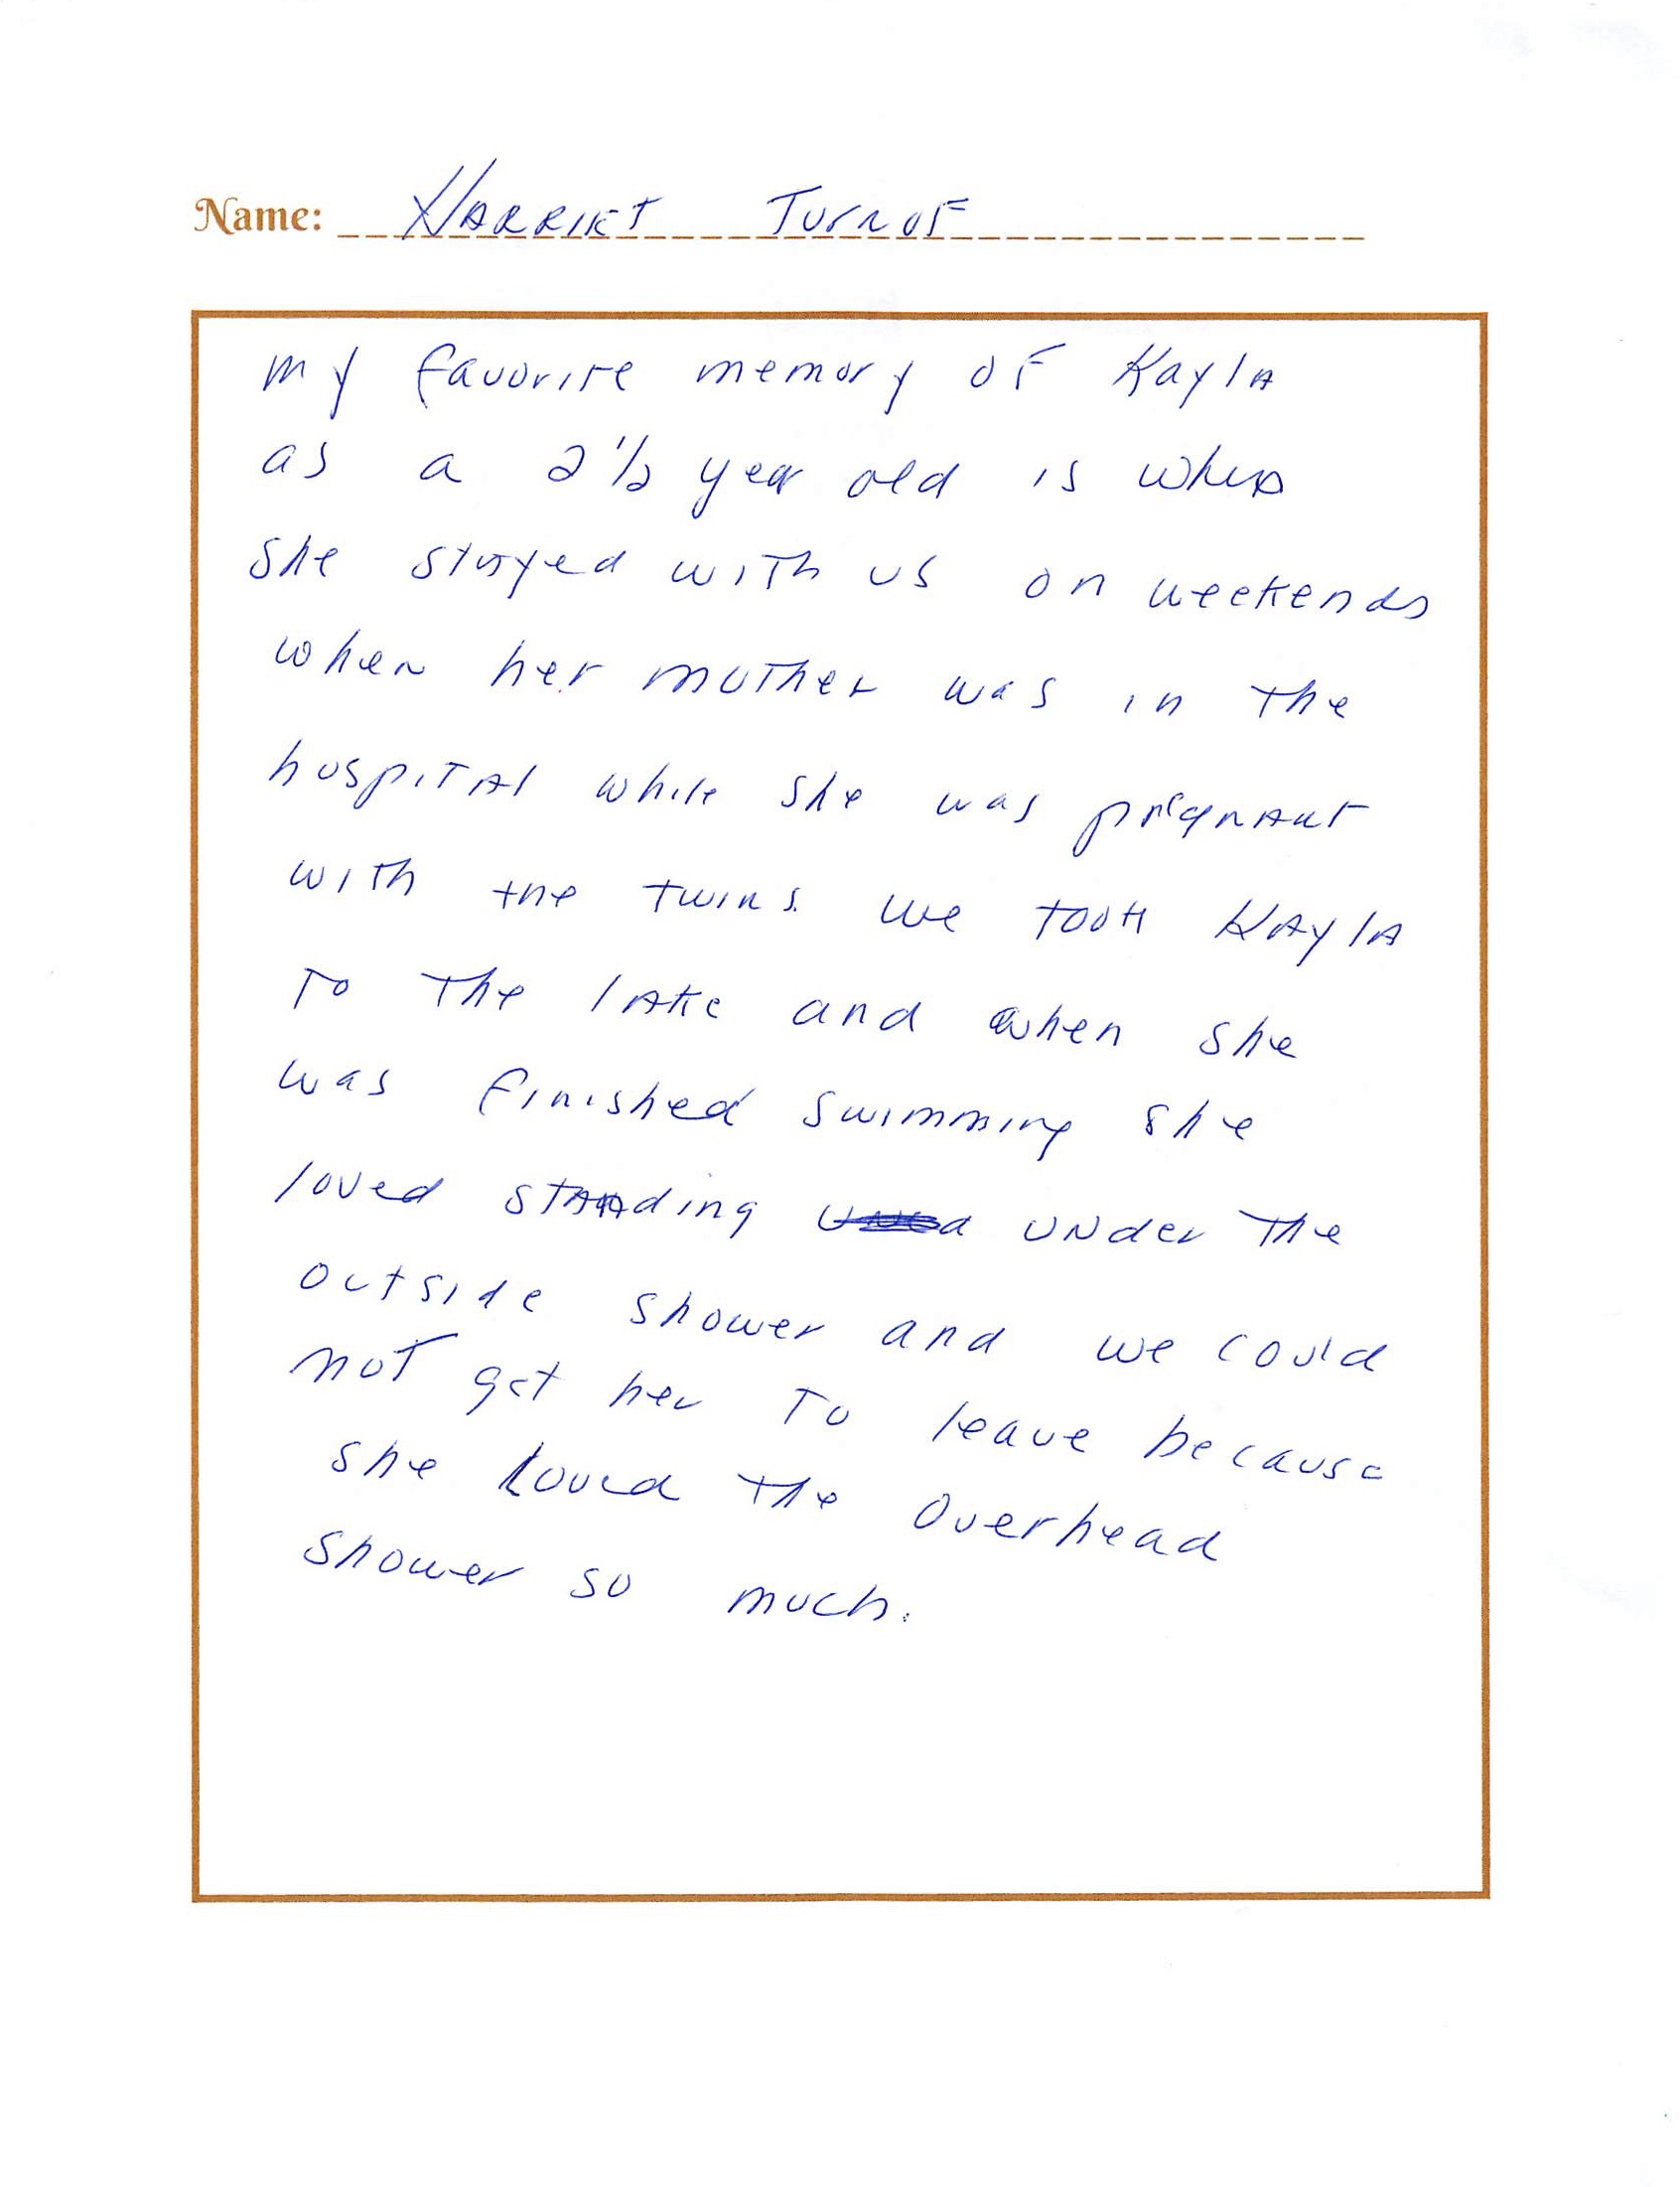 Name: Harriet Turnof
my favorite memory of Kayla
as a 2 1/2 year old is when
she stayed with us on weekends
when her mother was in the
hospital while she was pregnant
with the twins. We took Kayla
to the lake and when she
was finished swimming she
loved standing under the
outside shower and we could
not get her to leave because
she loved the overhead
shower so much.